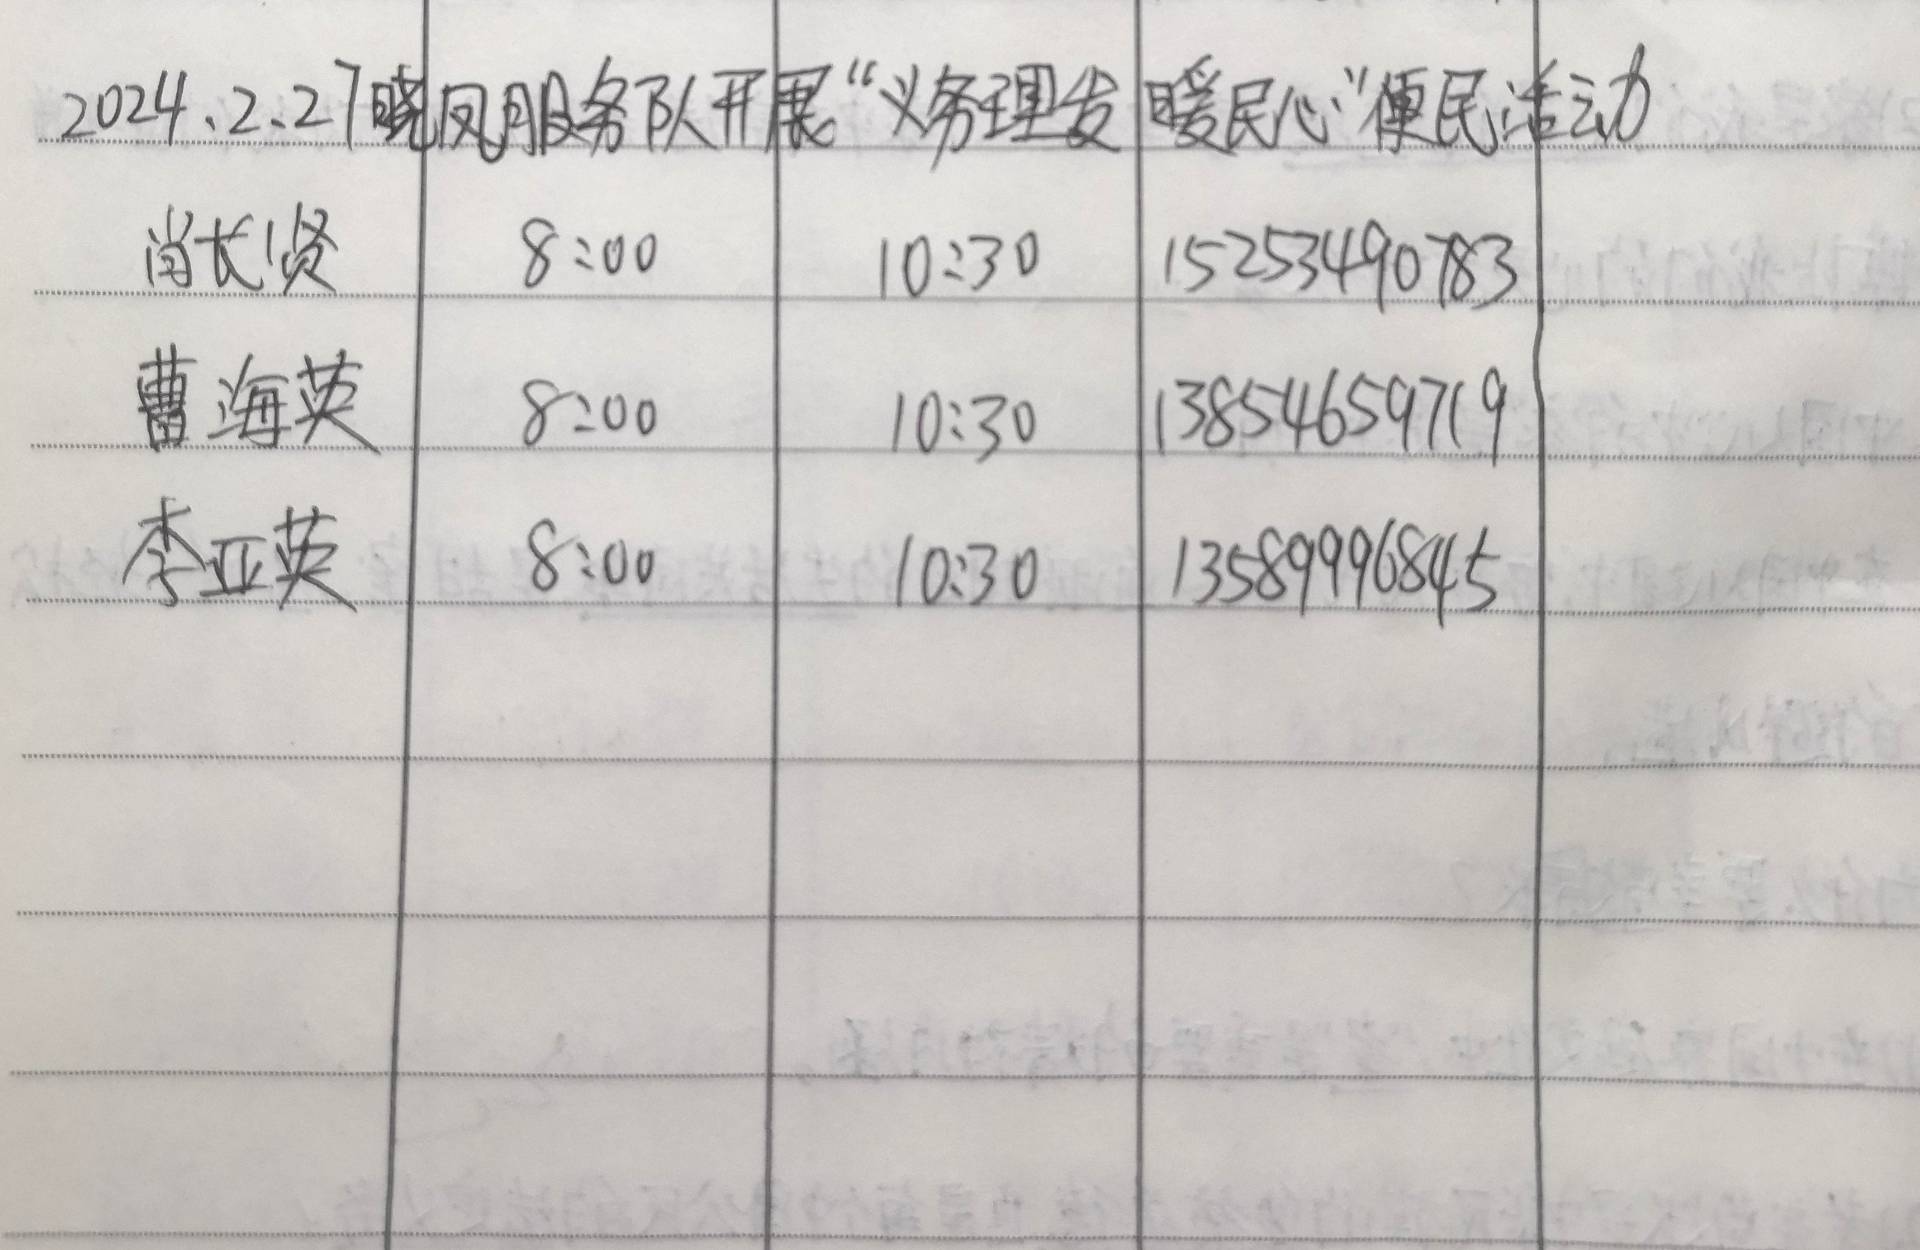 2024.2.27晓凤服务队开展“义务理发 暖民心”便民活动
肖长贤 8:00 10:30 15253490783
曹海英 8:00 10:30 13854659719
李亚英 8:00 10:30 13589996845